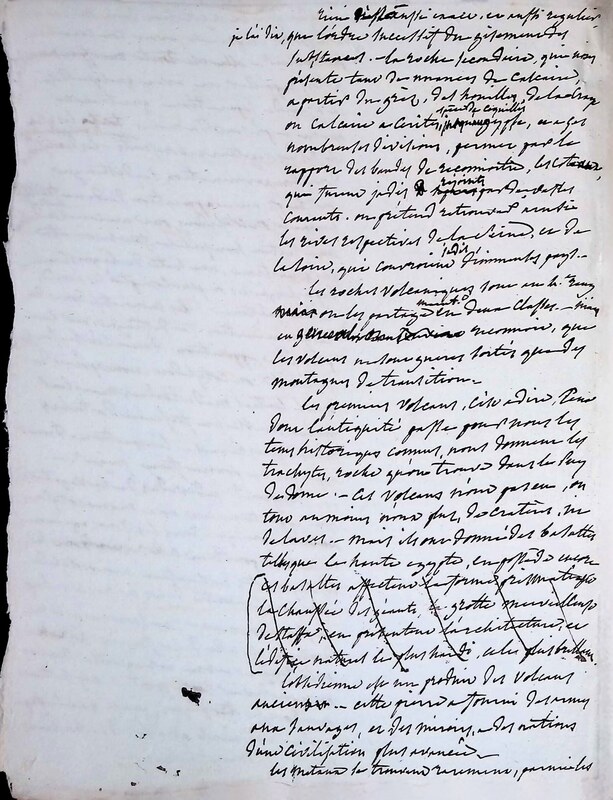 rien n'est aussi exact, et aussi regulier
je l'ai dit, que l'ordre successif du gisement des
substances. – la roche secondaire, qui nous
présente tant de nuances de calcaire,
a partir du grès, des houilles, de la craie
ou calcaire a cerites, espèce de coquilles jusqu'au gypse, et a ses
nombreuses divisions, permet par le
rapport des bandes de reconnoitre, les coteaux,
qui furent jadis rejoints par de vastes
courants. on pretend retrouver ainsi
les rives respectives de la Seine, et de
la loire, qui couvroient jadis d'immenses pays. –
les roches volcaniques sont
on les partage en deux classes. – mais
en reconnoit, que
les volcans ne sont gueres sortis que des
montagnes de transition. –
les premiers volcans, c'est a dire, ceux
dont l'antiquité passe pour nous les
tems historiques connus, nous donnent les
trachytes, roche qu'on trouve dans le Puy
de dome. – Ces volcans n'ont pas eu, ou
tout au moins n'ont plus, de cratères, ni
de laves. – mais ils ont donné des basaltes
tels que la haute egypte, en possède encore
ces basaltes affectent la forme prismatique
la chaussée des géants, la grotte merveilleuse
de staffa, en présentent l'architecture, et
l'edifice naturel le plus hardi, et le plus brillant
l'obsidienne est un produit des volcans
anciens – cette pierre a fourni des armes
aux sauvages, et des miroirs, a des nations
d'une civilisation plus avancée. –
les metaux se trouvent rarement, parmi les